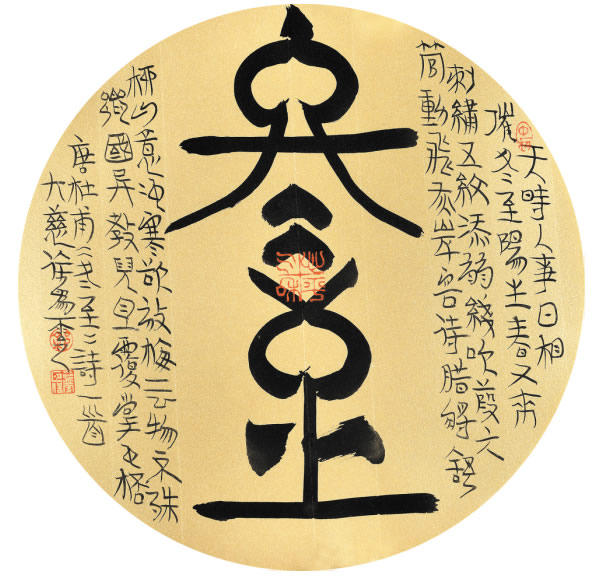 天時人事日相
催冬至陽生春又來
刺繡五紋添弱綫吹葭六
管動飛灰岸容待臘將舒
冬至
柳山意冲寒欲放梅云物不殊
鄉國異教兒且覆掌中杯
唐杜甫《冬至》詩一首
大慈徐